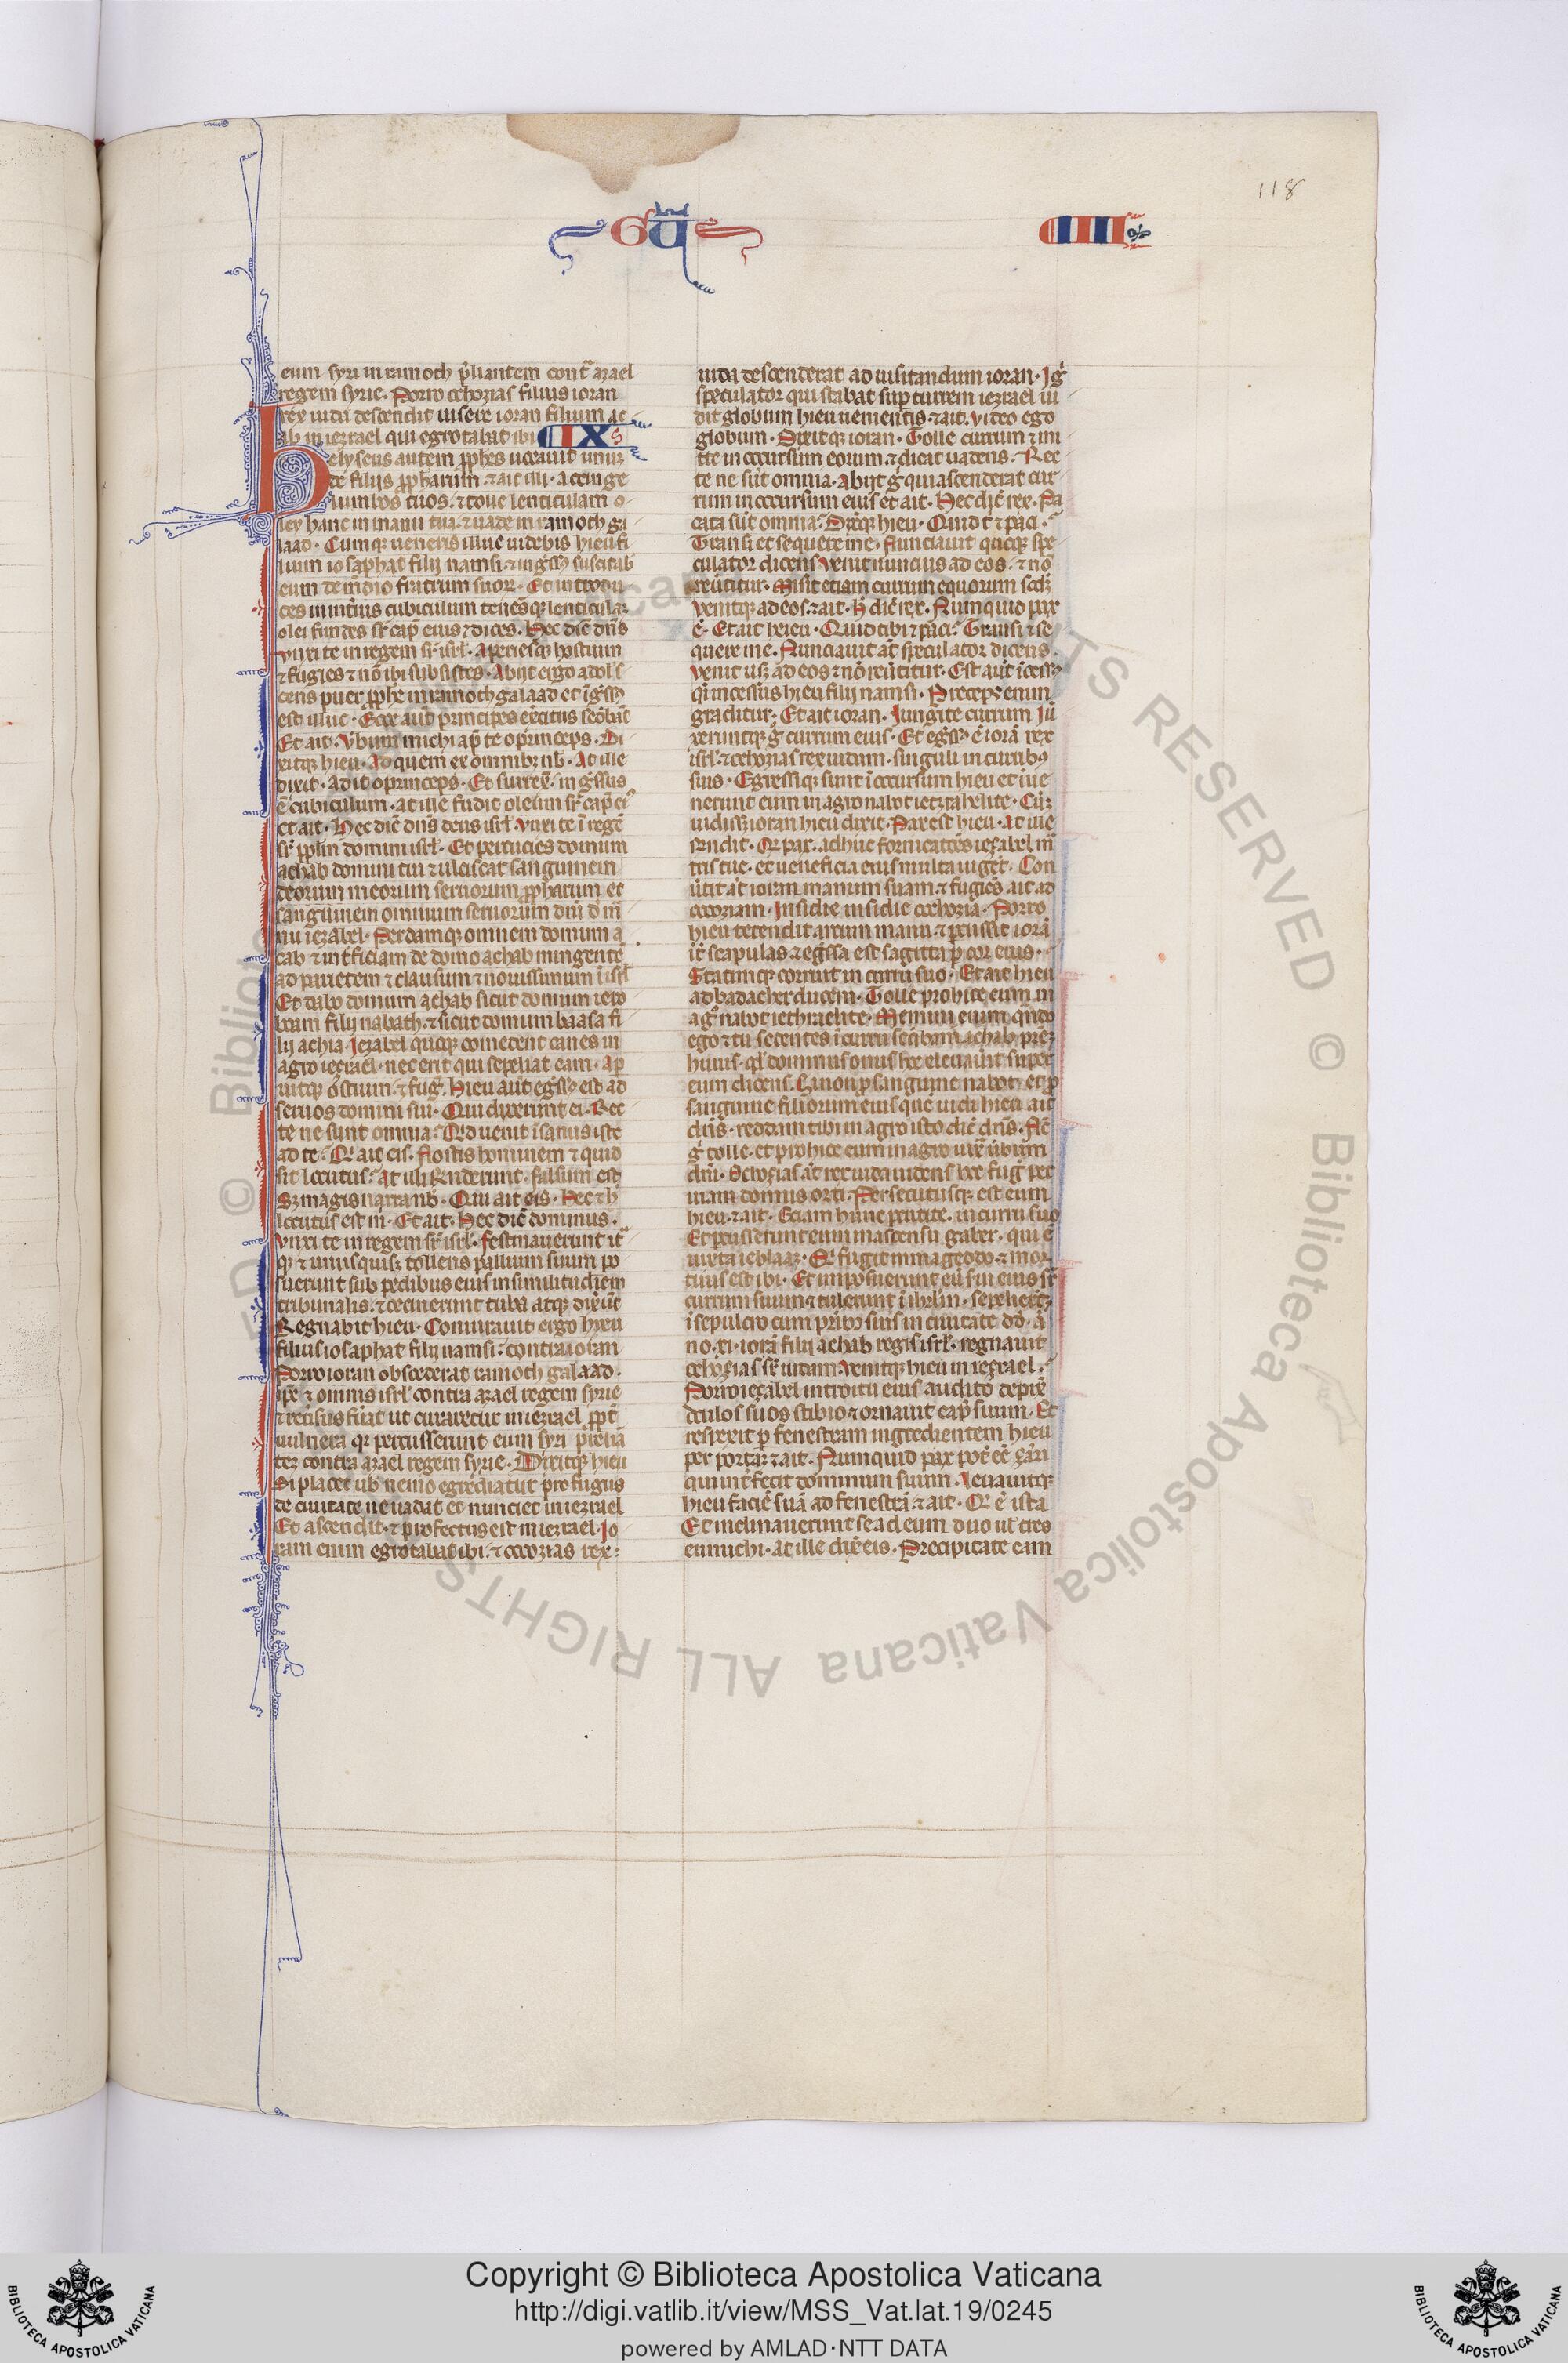 118
GU IIII
eum syri in ramoth p̄liantem cont̄ azael
regem syrie. Porro ochozias filius ioran
rex iuda descendit uisere ioran filium ac
ab in iezrael qui egrotabat ibi IX
Helyseus autem ꝓphes uocauit unuꝫ
de filijs ꝓpharum ⁊ ait illi. accinge
lumbos tuos. ⁊ tolle lenticulam o
ley hanc in manu tua. ⁊ uade in ramoth ga
laad. Cumqꝫ ueneris illuc uidebis hieu fi
lium iosaphat filij namsi. ⁊ ing̃ssꝰ suscitab̃
eum de m̃dio fratrum suoꝝ. Et introdu
ces in int̃ius cubiculum tenesqꝫ lenticulaꝫ
olei fundes sr̃ cap̃ eius ⁊ dices. Hec dic̃ dñs
Vnxi te in regem sr̃ isrl̃. Aperiesqꝫ hostium
⁊ fugies ⁊ nõ ibi subsistes. Abijt ergo adol's
cens puer ꝓphe in ramoth galaad et ĩg̃ssꝰ
est illuc. Ecce aut̃ principes ex̃citus sedb̃ãt
Et ait. Ṽbum michi ap̃ te o princeps. Di
xitqꝫ hieu. Ad quem ex omnibꝫ nb̃. At ille
dixit. ad te o princeps. Et surrex̃. ing̃ssus
ẽ cubiculum. at ille fudit oleum sr̃ cap̃ eiꝰ
et ait. Hec dic̃ dñs deus isrl̃. Vnxi te ĩ regẽ
sr̃ ꝓplm̃ domini isrl̃. Et percucies domum
achab domini tui ⁊ ulciscar sanguinem
seruorum meorum ꝓpharum et
sanguinem omnium seruorum dñi d̃ mã
nu iezabel. Perdamqꝫ omnem domum a
cab ⁊ int̃ficiam de domo achab mingentẽ
ad parietem ⁊ clausum ⁊ nouissimum ĩ isrl̃
Et dabo domum achab sicut domum iero
boam filij nabath. ⁊ sicut domum baasa fi
lij achia. Iezabel quoqꝫ comedent canes in
agro iezrael. nec erit qui sepeliat eam. ap̃
uitqꝫ ostium. ⁊ fug̃. Hieu aut̃ eg̃ssꝰ est ad
seruos domini sui. Qui dixerunt ei. Rec
te ne sunt omnia. Qd̃ uenit ĩsanus iste
ad te. Qi ait eis. Nostis hominem ⁊ quid
sit locutus. At illi r̃nderunt. falsum est
Sꝫ magis narra nb̃. Qui ait eis. Hec ⁊ h̃
locutus est m̃. Et ait. Hec dic̃ dominus.
Vnxi te in regem sr̃ isrl̃. Festinauerunt it̃
qꝫ ⁊ unusquisqꝫ tollens pallium suum po
suerunt sub pedibus eius in similitudiem
tribunalis. ⁊ cecinerunt tuba atqꝫ dixer̃t
Regnabit hieu. Coniurauit ergo hyeu
filius iosaphat filij namsi. contra ioran
Porro ioran obsederat ramoth galaad.
ip̃e ⁊ omnis isrl̃ contra azael regem syrie
⁊ reu̾sus fu̾at ut curaretur in iezrael ꝓpt̃
uulnera qꝫ percusserunt eum syri p̃eliã
tez contra azael regem syrie. Dixitqꝫ hieu
Si placet ub̃ nemo egrediatur profugus
de ciuitate ne uadat et nunciet in iezrael
Et ascendit. ⁊ profectus est in iezrael. Io
ram enim egrotabat ibi. ⁊ ocozias rex
iuda descenderat ad uisitandum ioran. Ig̃
speculator qui stabat sup̃ turrem iezrael ui
dit globum hieu uenientis ⁊ ait. Video ego
globum. Dixitqꝫ ioran. Tolle currum ⁊ mi
tte in occursum eorum. ⁊ dicat uadens. Rec
te ne sũt omnia. Abijt g̃ qui ascenderat cur
rum in occursum eius et ait. Hec dic̃ rex. Pa
cata sũt omnia. Dixqꝫ hieu. Quid t̃ ⁊ paci.
Transi et sequere me. Nunciauit quoqꝫ spe
culator dicens. Venit nuncius ad eos. ⁊ nõ
reũtitur. Misit etiam currum equorum scdꝫ
venitqꝫ ad eos. ⁊ ait. h̃ dic̃ rex. Numquid pax
ẽ. Et ait hieu. Quid tibi ⁊ paci. Transi ⁊ se
quere me. Nunciauit at̃ speculator dicens
Venit usqꝫ ad eos ⁊ nõ reũtitur. Est aut̃ ĩcessꝰ
q̃i incessus hieu filij namsi. Preceps enim
graditur. Et ait ioran. Iungite currum iũ
xeruntqꝫ g̃ currum eius. Et eg̃ssꝰ ẽ iorã rex
isrl̃. ⁊ ochozias rex iudam. singuli in curribꝰ
suis. Egressiqꝫ sunt ĩ occursum hieu et ĩue
nerunt eum in agro nabot iezrahelite. Cũqꝫ
uidissꝫ ioran hieu dixit. Pax est hieu. At ille
r̃ndit. Q̃ pax. adhuc fornicatões iezabel m̃
tris tue. et ueneficia eius multa uiget. Con
ũtit at̃ ioram manum suam. ⁊ fugiẽs ait ad
ocoziam. Insidie insidie ochozia. Porro
hieu tetendit arcum manu ⁊ p̃cussit iorã
ĩt̃ scapulas ⁊ eg̃ssa est sagitta p̃ cor eius.
Statimqꝫ corruit in curru suo. Et ait hieu
ad badacher ducem. Tolle prohice eum in
ag̃ nabot iethraelite. Memini enim qñdo
ego ⁊ tu sedentes ĩ curru seq̃bam̃ achab pr̃eꝫ
huius. qd̃ dominus onus hoc eleuau̾it super
eum dicens. Si non p̃ sanguine nabot. et p̃
sanguine filiorum eius que uidi hieri ait
dñs. reddam tibi in agro isto dic̃ dñs. Nc̃
g̃ tolle. et prohice eum in agro iux̃ ũbum
dñi. Ochozias at̃ rex iuda uidens hoc fug̃ per
uiam domus orti. Persecutusqꝫ est eum
hieu. ⁊ ait. Etiam hunc percutite. in curru suo
Et percusserunt eum in ascensu gaber. qui ẽ
iuxta ieblaaꝫ. Q̃ fugit in mageddo. ⁊ mor
tuus est ibi. Et imposuerunt eũ s̃ui eius sr̃
currum suum ⁊ tulerunt ĩ ihrl̃m. sepeliert̃qꝫ
ĩ sepulcro cum pr̃ibꝰ suis in ciuitate dd̃. A
no. xi. iorã filij achab regis isrl̃. regnauit
ochozias sr̃ iudam. Venitqꝫ hieu in iezrael.
Porro iezabel introitu eius audito depix̃
oculos suos stibio ⁊ ornauit cap̃ suum. Et
respexit p̃ fenestram ingredientem hieu
per portaꝫ ⁊ ait. Numquid pax pot̃ eẽ zãri
qui int̃fecit dominum suum. Leuauitqꝫ
hieu faciẽ suã ad fenestrã. ⁊ ait. Q̃ ẽ ista
Et inclinauerunt se ad eum duo ul' tres
eunuchi. At ille dix̃ eis. Precipitate eam
Copyright © Biblioteca Apostolica Vaticana
http://digi.vatlib.it/view/MSS_Vat.lat.19/0245
powered by AMLAD·NTT DATA
BIBLIOTECA APOSTOLICA VATICANA
BIBLIOTECA APOSTOLICA VATICANA
© Biblioteca Apostolica Vaticana ALL RIGHTS RESERVED